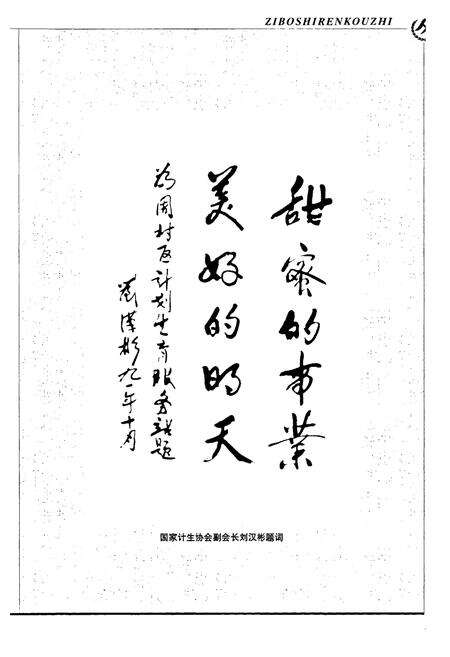 ZIBOSHIRENKOUZHI
甜蜜的事業
美好的明天
为周村区计划生育服务站题
劉漢彬九一年十月
国家计生协会副会长刘汉彬题词